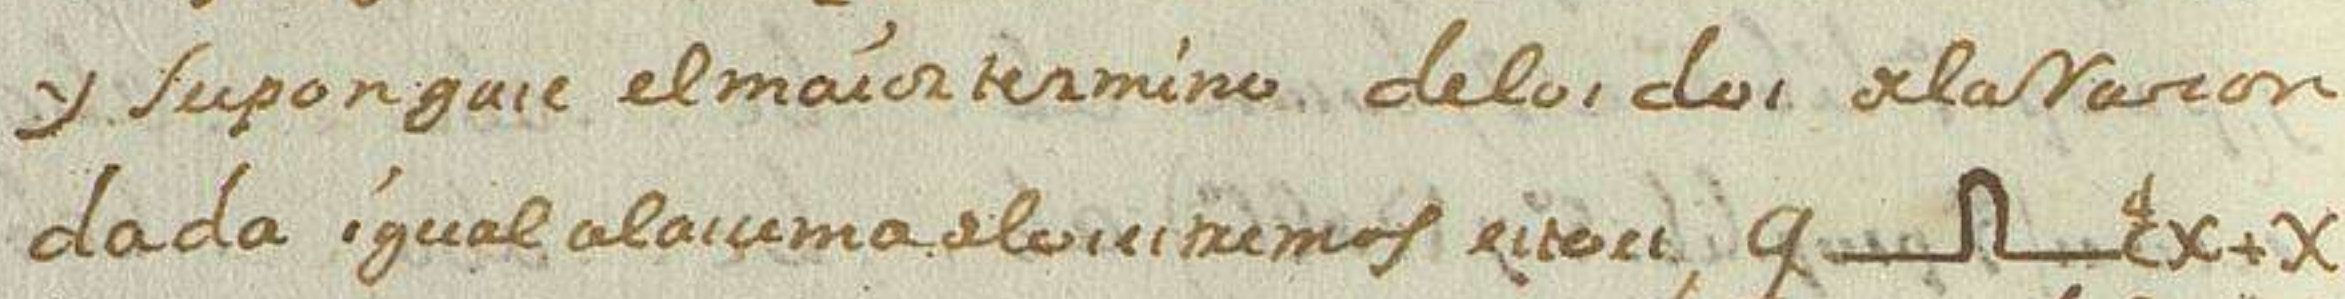 y supongase el maíor termíno delos dos dela Racion
dada ígual ala suma delos estremos esto es, q ⊓ d/c x + x